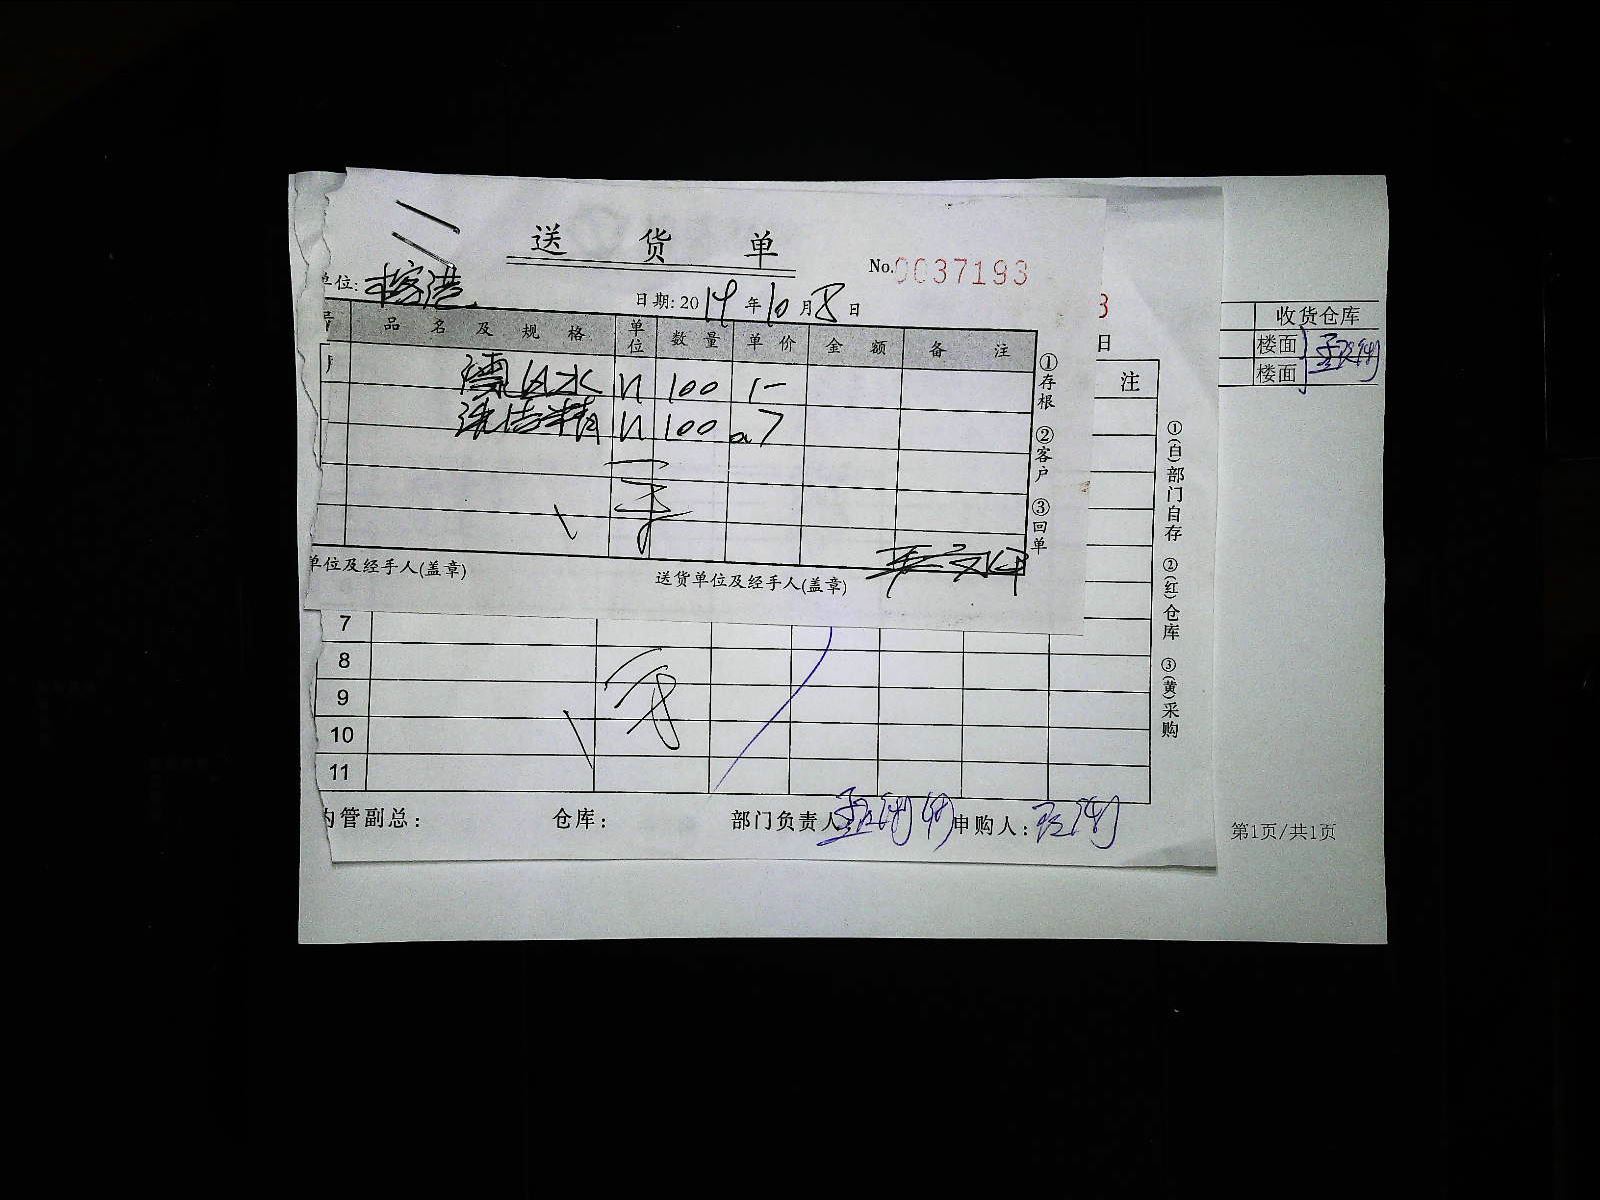 送 货 单
No.0037193
单位:
日期: 2019年10月8日
品 名 及 规 格 单位 数 量 单 价 金 额 备 注
漂白水 100 1-
洗洁精 100 0.7
单位及经手人(盖章) 送货单位及经手人(盖章)
①存根 ②客户 ③回单
3
日
注
7
8
9
10
11
内管副总: 仓库: 部门负责人: 申购人:
①(白)部门自存 ②(红)仓库 ③(黄)采购
收货仓库
楼面
楼面
第1页/共1页